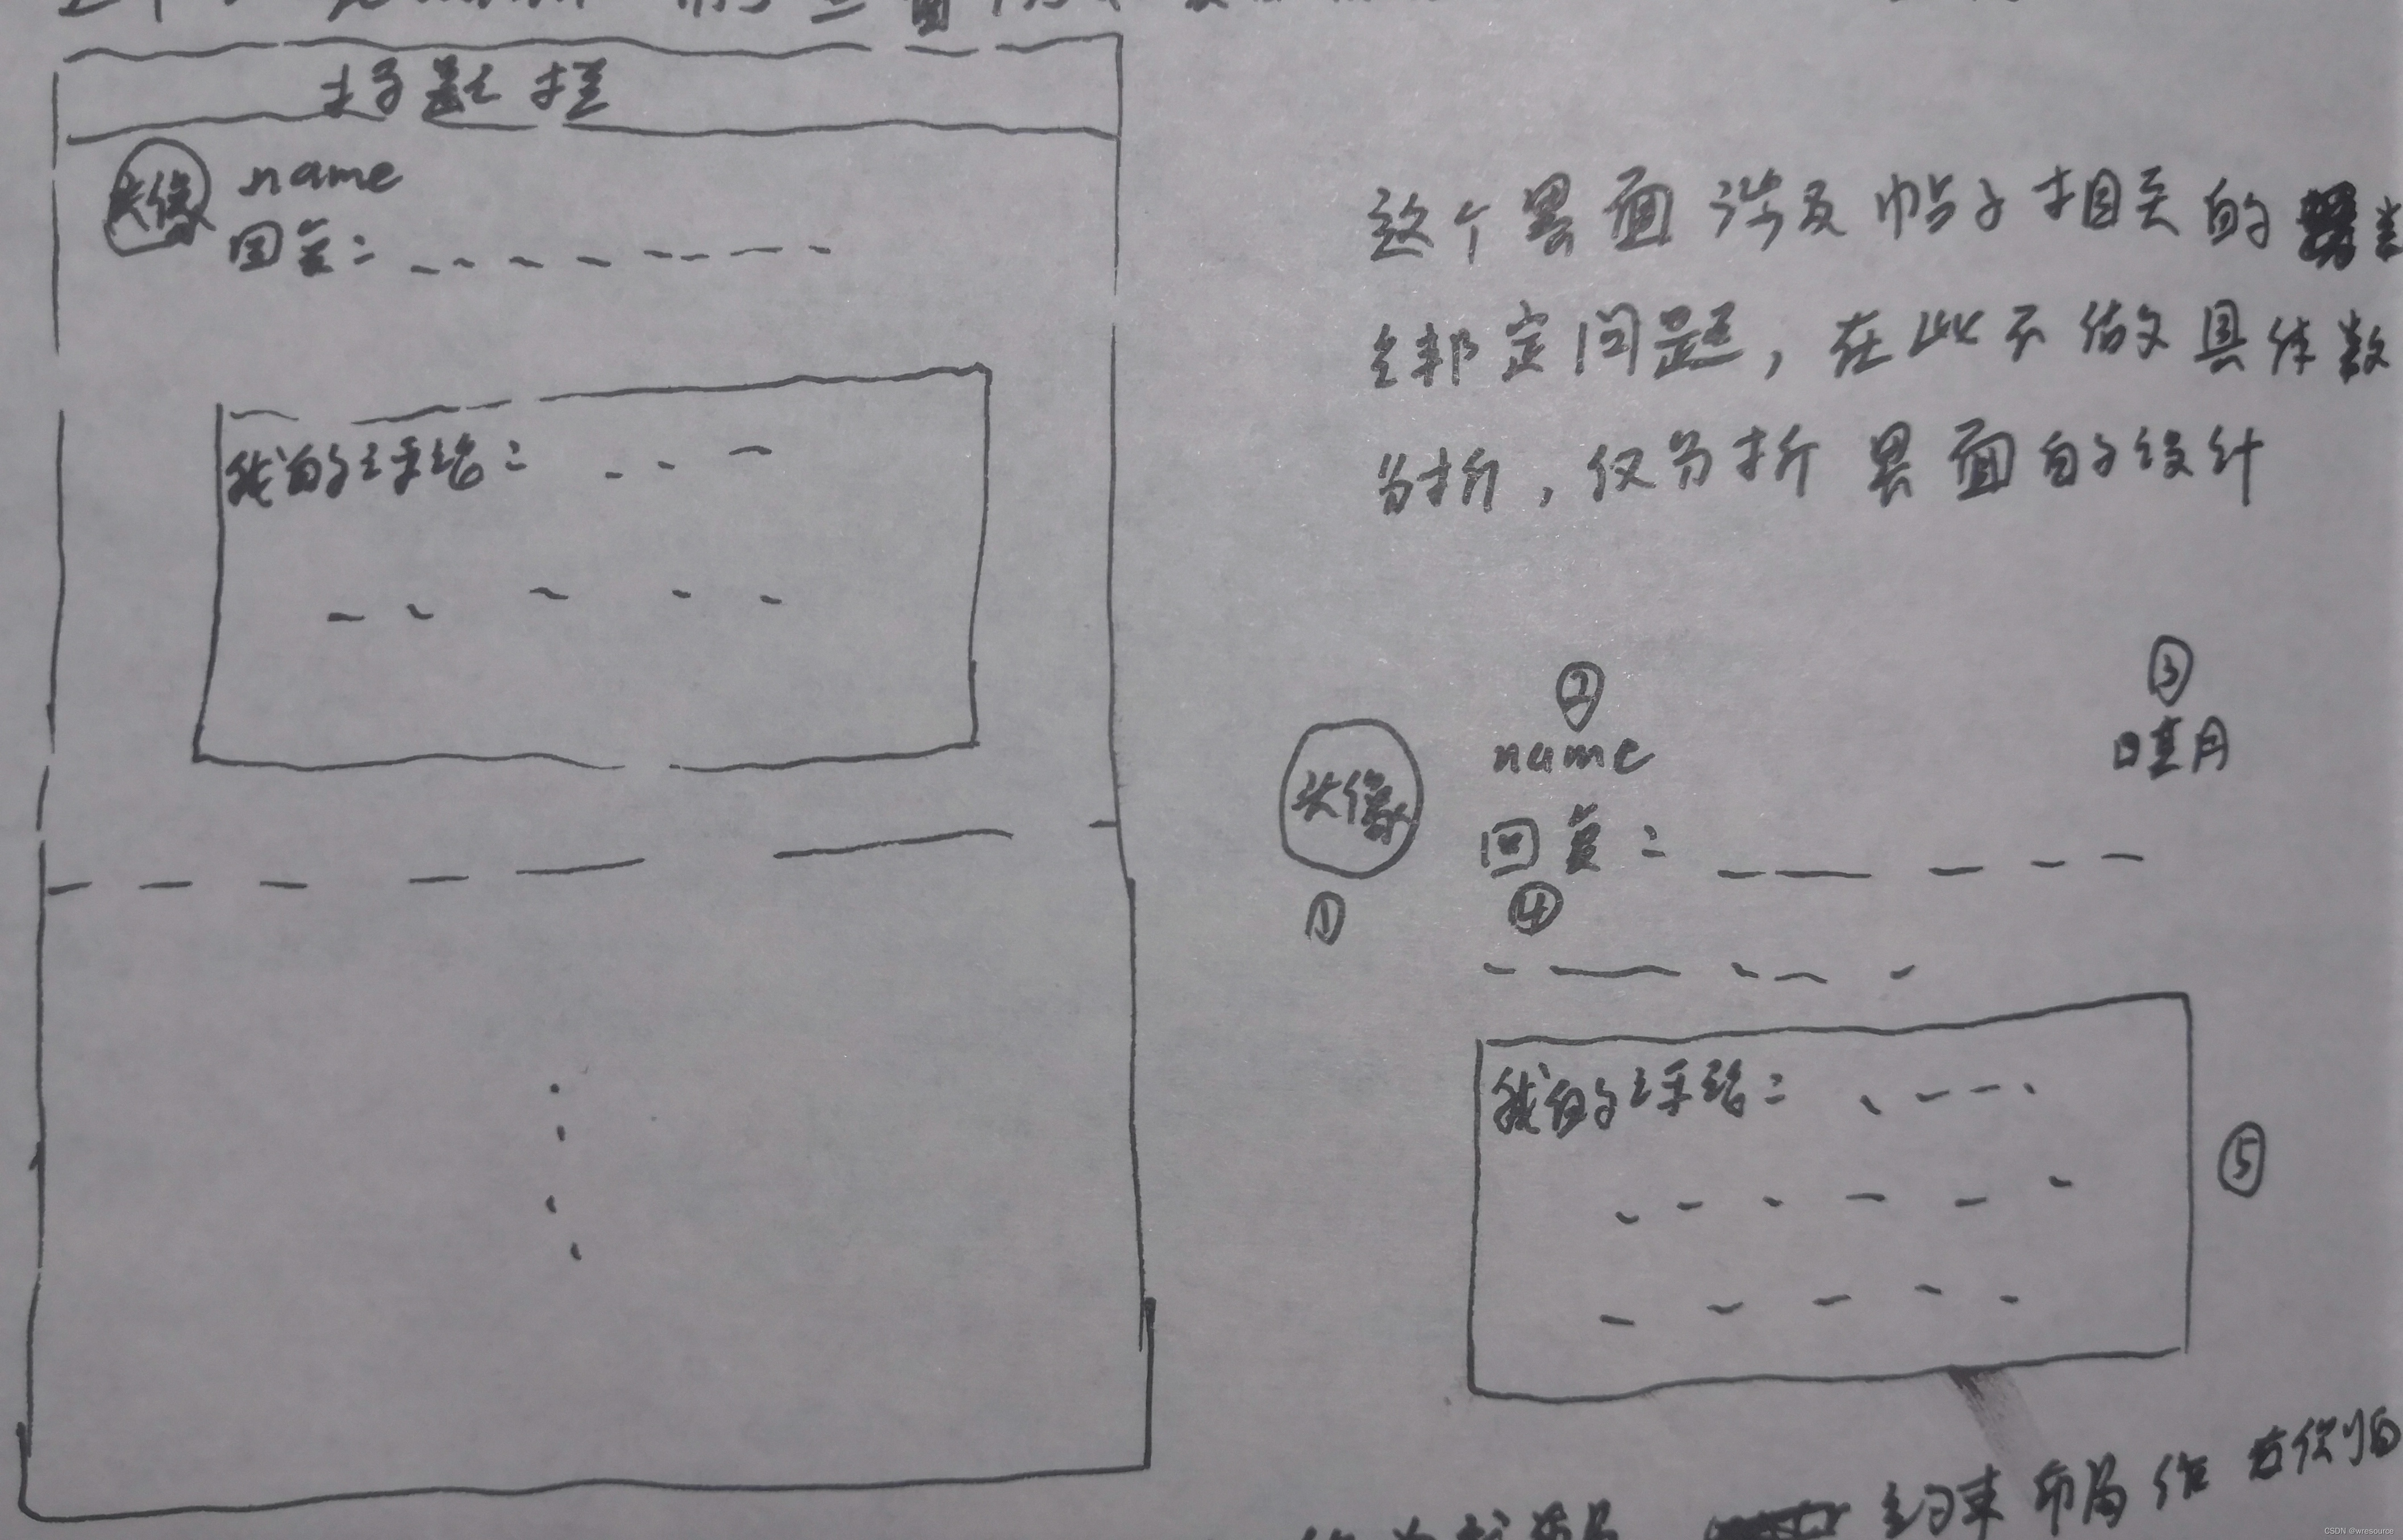 标题栏
头像
name
回复：
我的评论：
这个界面涉及帖子相关的
绑定问题，在此不做具体数
分析，仅分析界面的设计
②
③
name
日期
头像
回复：
①
④
我的评论：
⑤
约束布局作
CSDN @wresource